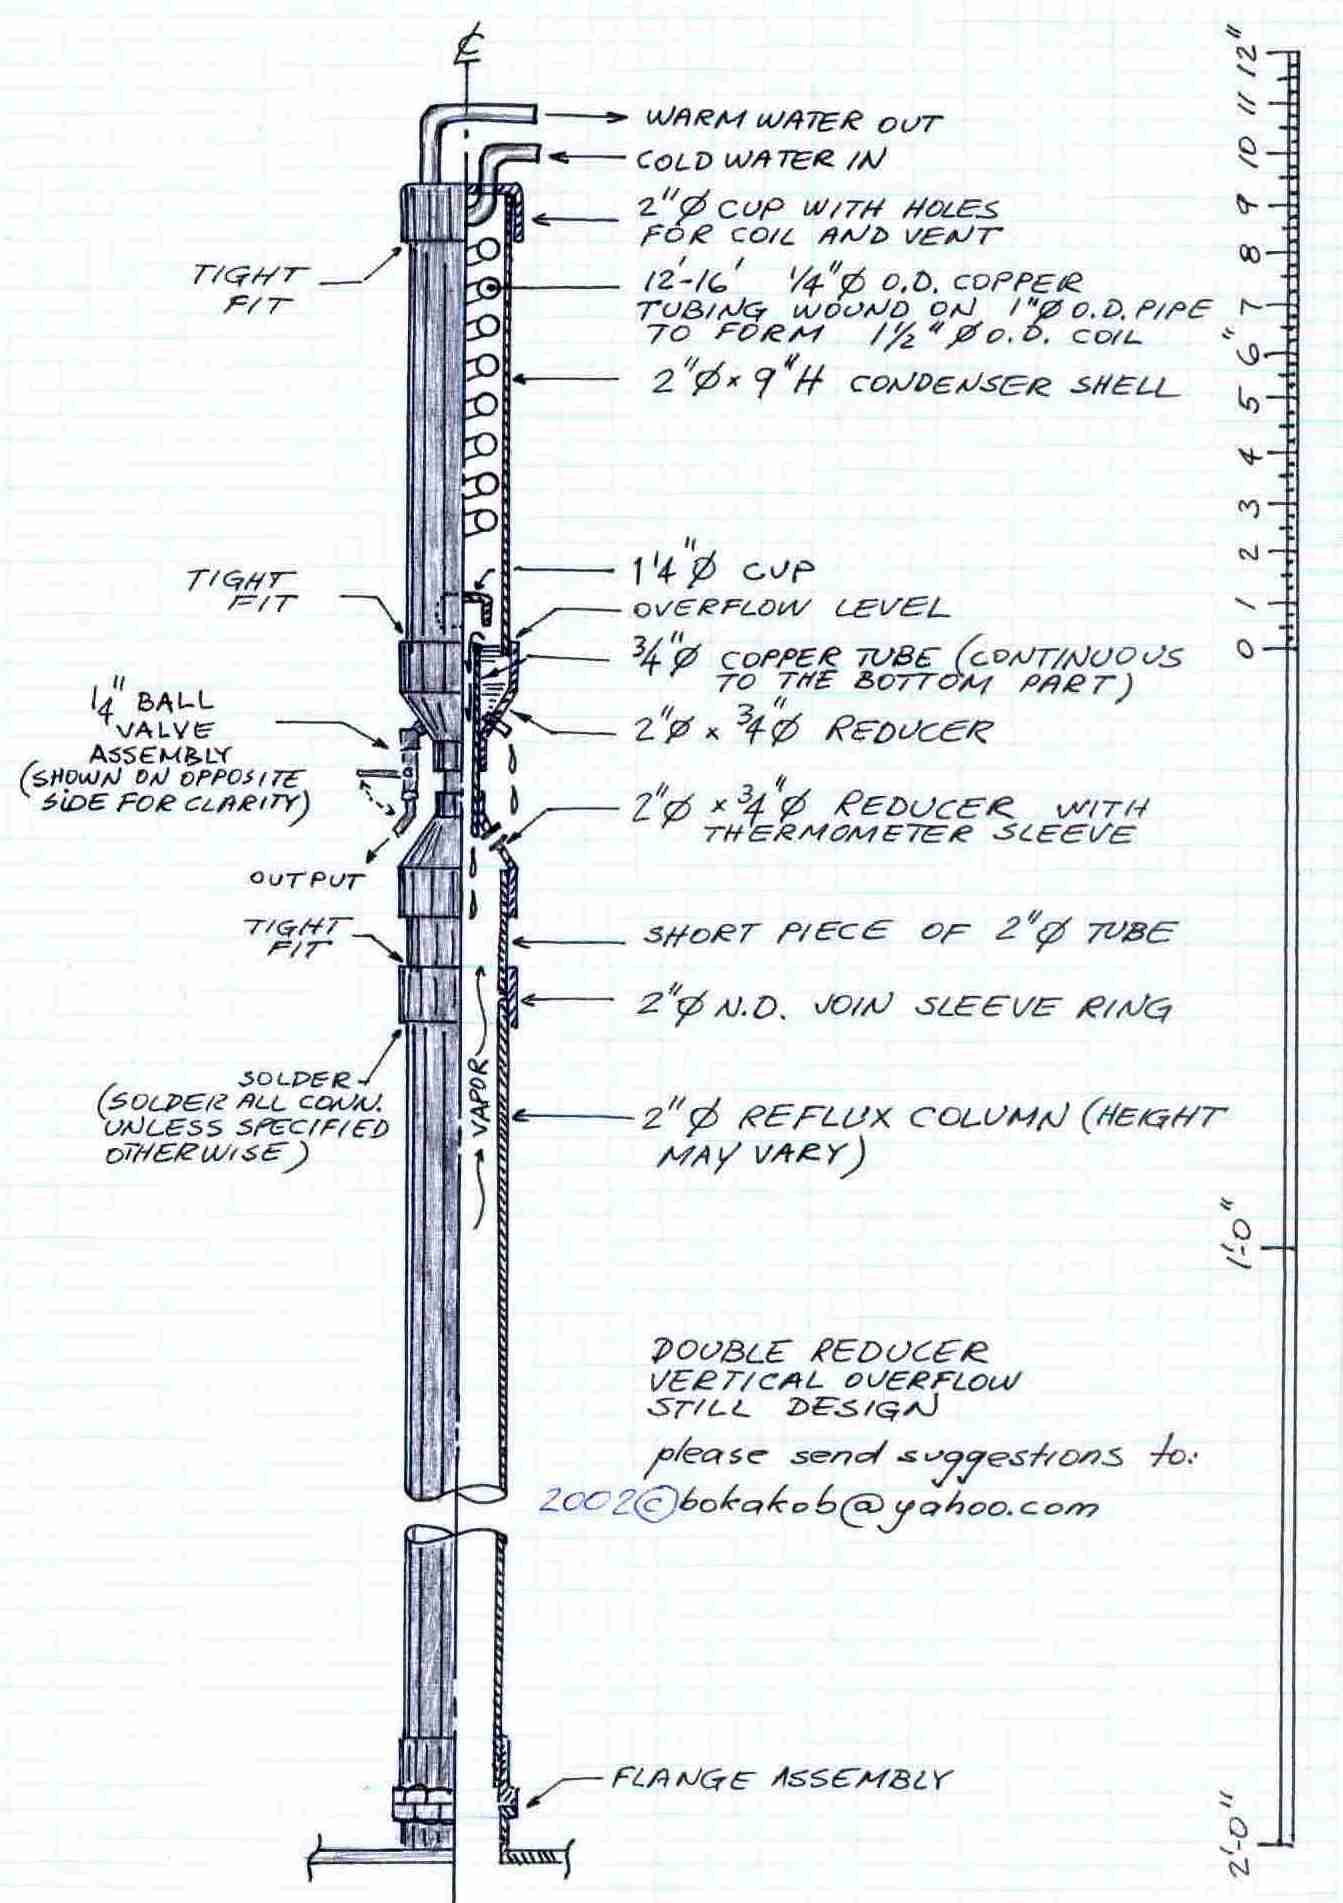 ℄
WARM WATER OUT
COLD WATER IN
2"Ø CUP WITH HOLES
FOR COIL AND VENT
TIGHT
FIT
12'-16' 1/4"Ø O.D. COPPER
TUBING WOUND ON 1"Ø O.D. PIPE
TO FORM 1 1/2"Ø O.D. COIL
2"Ø x 9"H CONDENSER SHELL
TIGHT
FIT
1'4"Ø CUP
OVERFLOW LEVEL
3/4"Ø COPPER TUBE (CONTINUOUS
TO THE BOTTOM PART)
1/4" BALL
VALVE
ASSEMBLY
(SHOWN ON OPPOSITE
SIDE FOR CLARITY)
2"Ø x 3/4"Ø REDUCER
2"Ø x 3/4"Ø REDUCER WITH
THERMOMETER SLEEVE
OUTPUT
TIGHT
FIT
SHORT PIECE OF 2"Ø TUBE
2"Ø N.D. JOIN SLEEVE RING
SOLDER
(SOLDER ALL CONN.
UNLESS SPECIFIED
OTHERWISE)
VAPOR
2"Ø REFLUX COLUMN (HEIGHT
MAY VARY)
DOUBLE REDUCER
VERTICAL OVERFLOW
STILL DESIGN
please send suggestions to:
2002©bokakob@yahoo.com
FLANGE ASSEMBLY
12"
11
10
9
8
7
6"
5
4
3
2
1
0
1'-0"
2'-0"